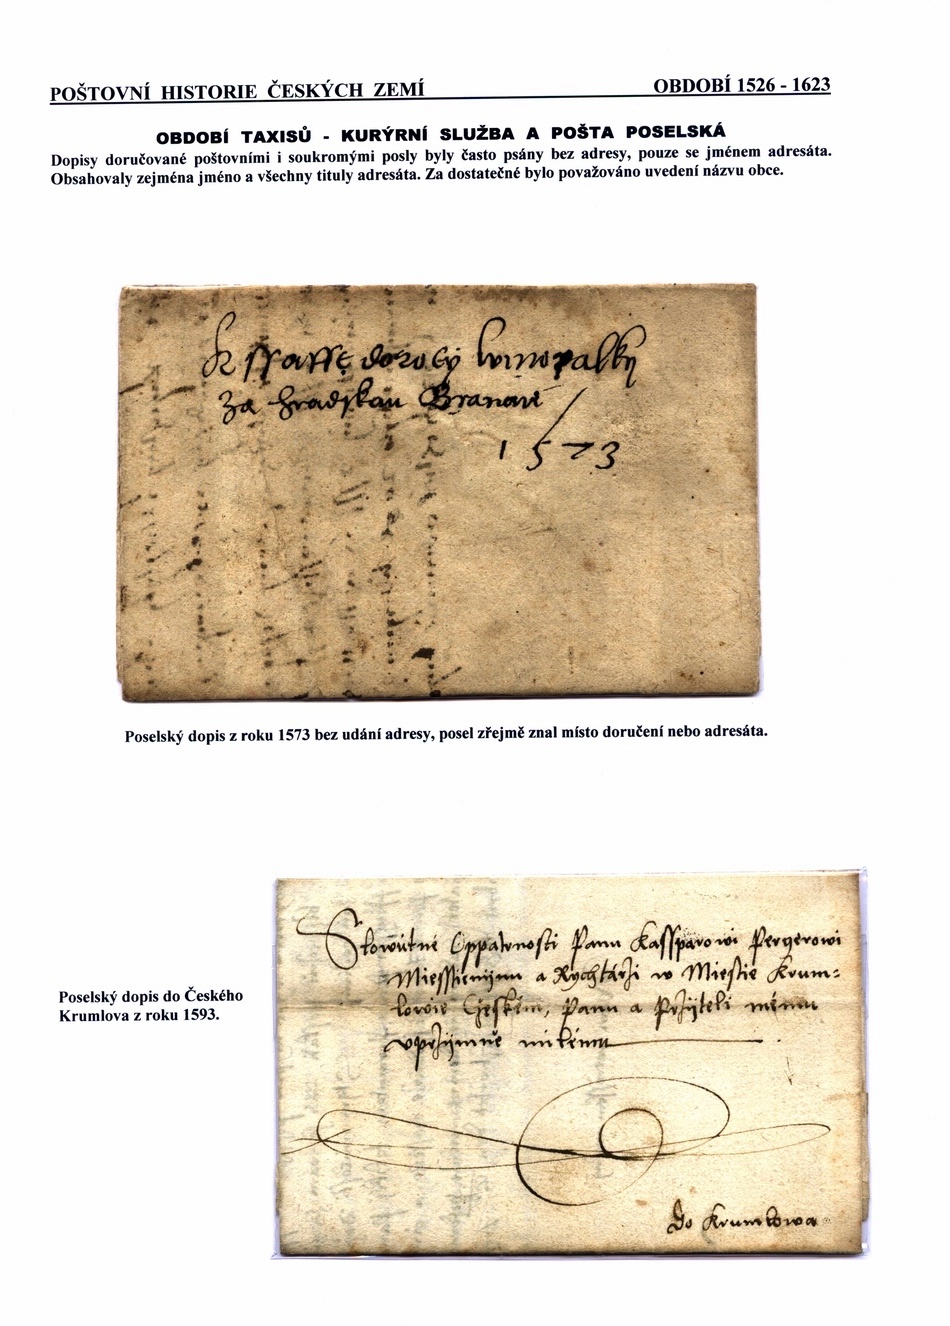 POŠTOVNÍ HISTORIE ČESKÝCH ZEMÍ
OBDOBÍ 1526 - 1623
OBDOBÍ TAXISŮ - KURÝRNÍ SLUŽBA A POŠTA POSELSKÁ
Dopisy doručované poštovními i soukromými posly byly často psány bez adresy, pouze se jménem adresáta.
Obsahovaly zejména jméno a všechny tituly adresáta. Za dostatečné bylo považováno uvedení názvu obce.
K doroty winopalky
Za hradskau Branau
1573
Poselský dopis z roku 1573 bez udání adresy, posel zřejmě znal místo doručení nebo adresáta.
Poselský dopis do Českého
Krumlova z roku 1593.
Slowutné Oppatrnosti Panu Kassparowi Pergerowi
Miesstieninu a Rychtárži w Miestie Krum=
lowie Cžeském, Panu a Pržijteli mému
vprzijmně milému
Do Krumlowa